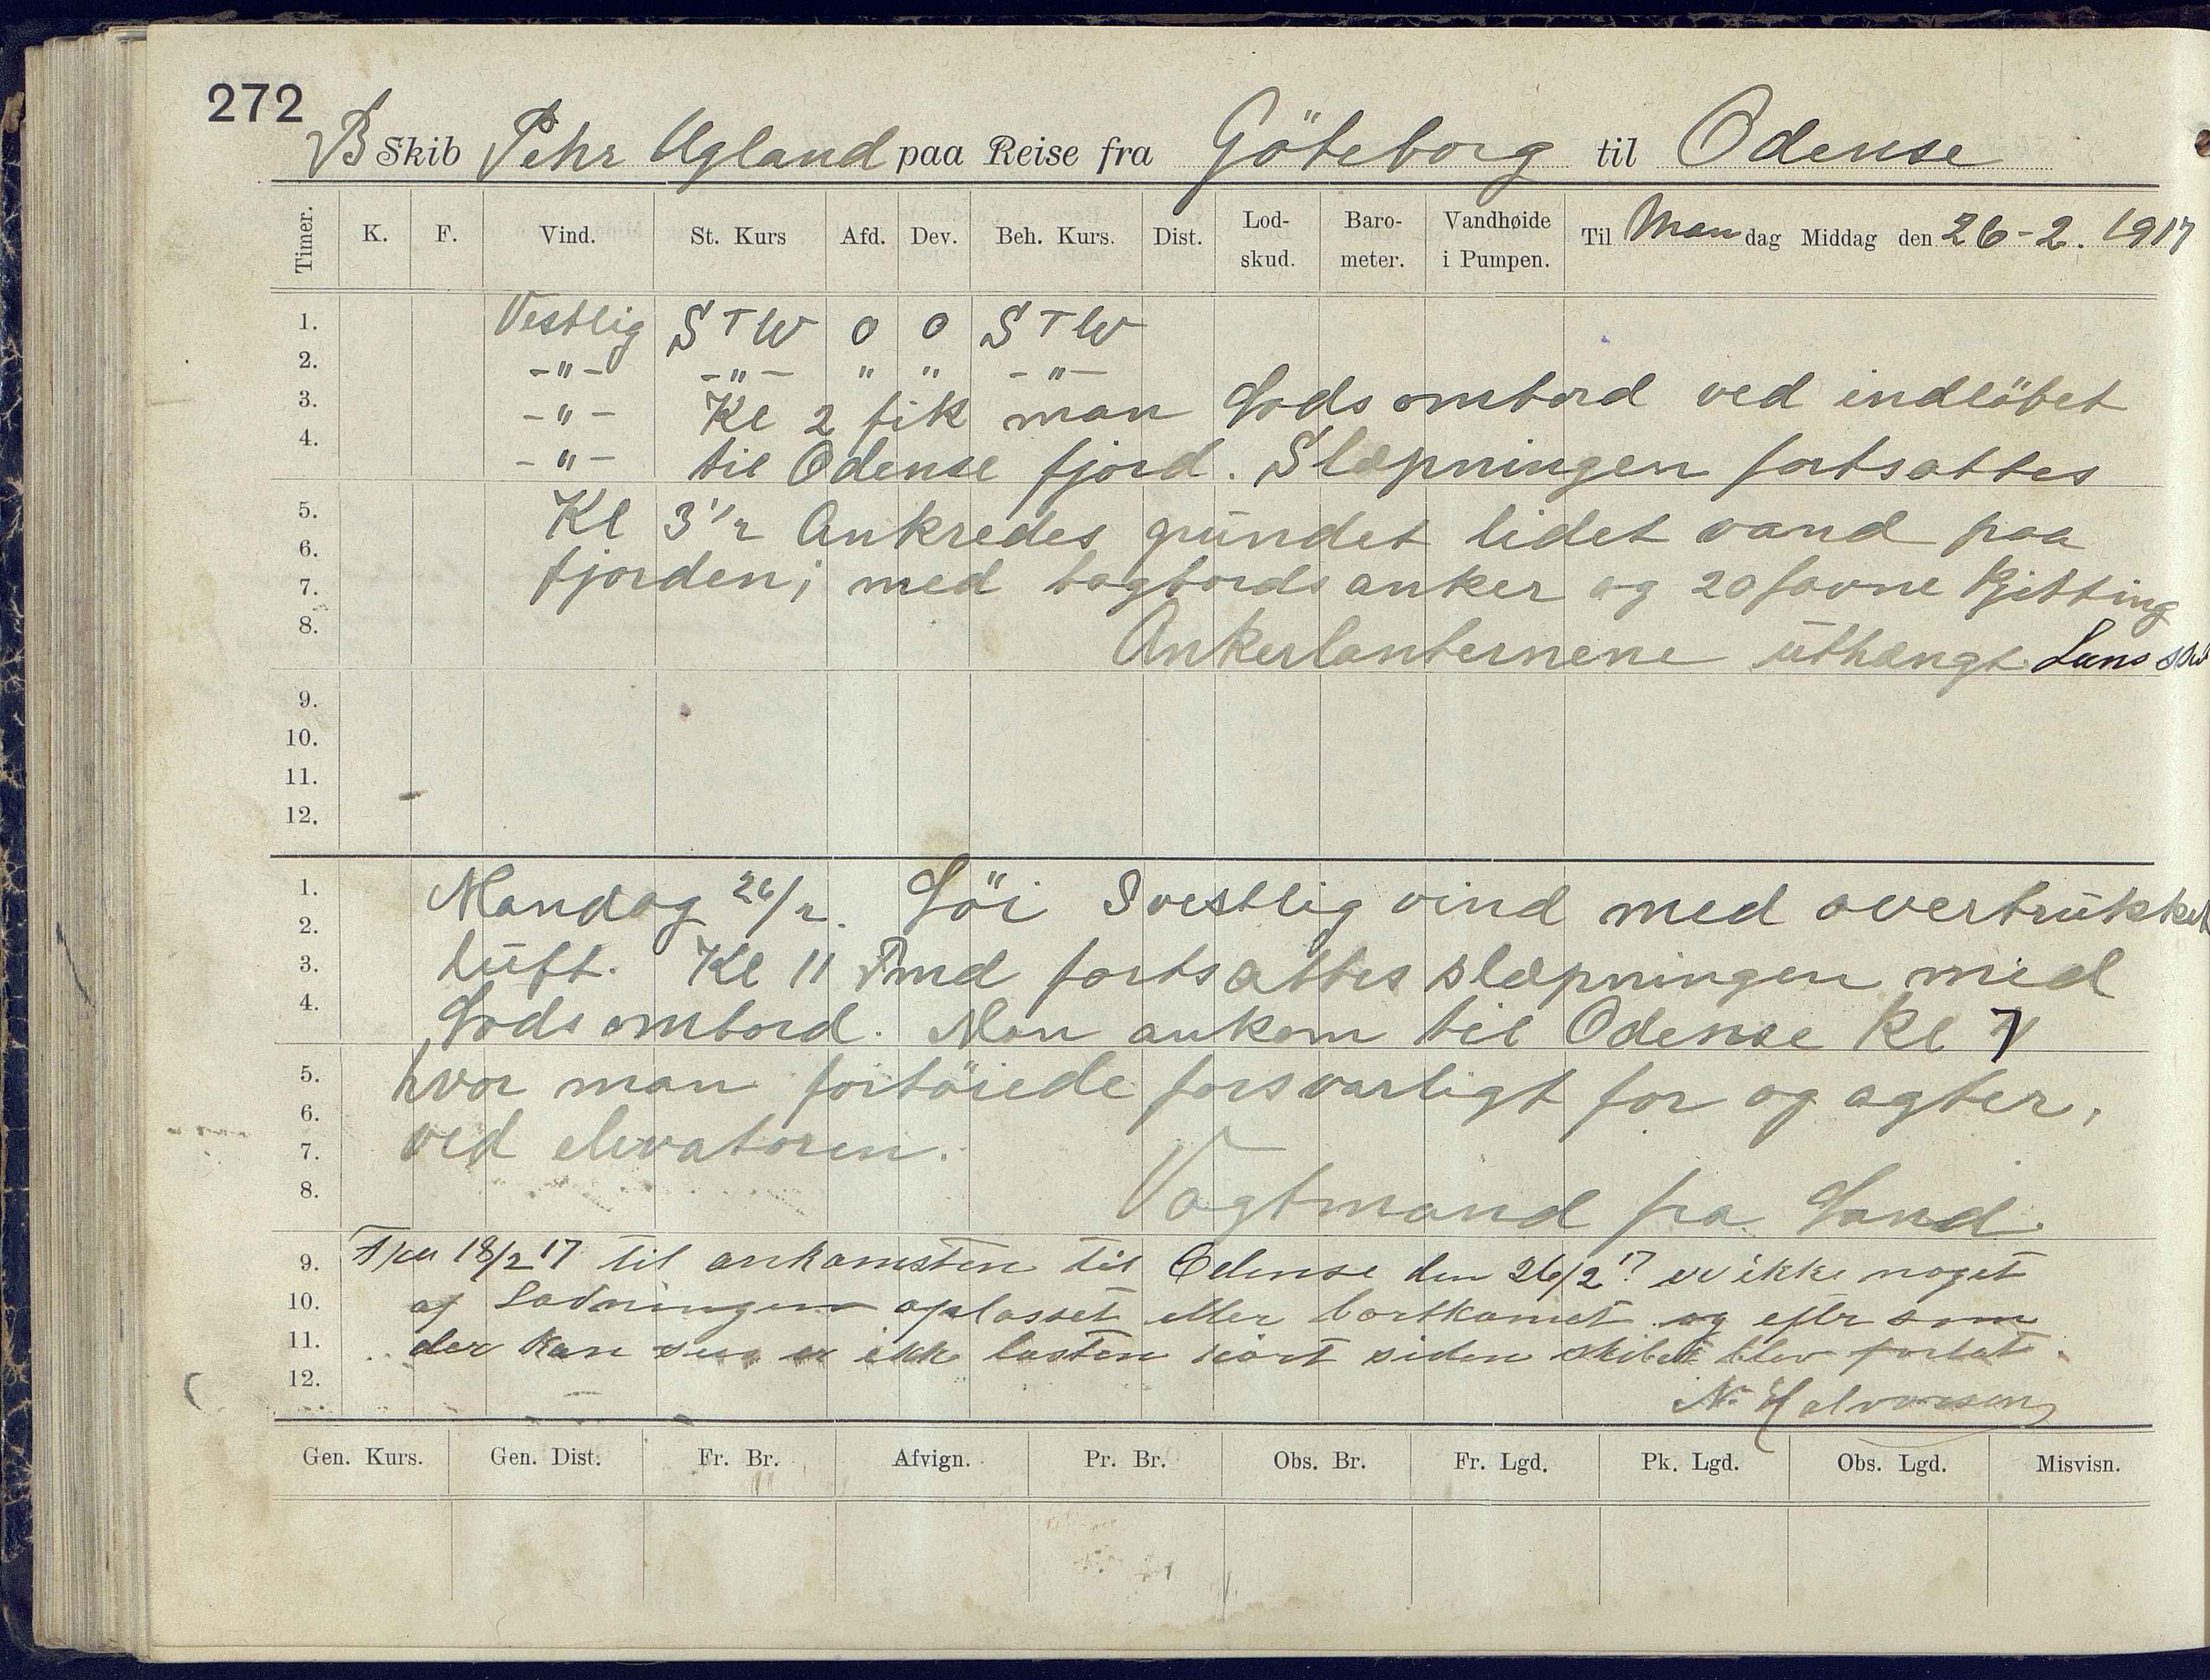 272
B Skib Pehr Ugland paa Reise fra Göteborg til Odense
Timer. K. F. Vind. St. Kurs Afd. Dev. Beh. Kurs. Dist. Lod-skud. Baro-meter. Vandhøide i Pumpen. Til Mandag Middag den 26-2. 1917
1. Vestlig STW 0 0 STW
2. -"- -"- " " -"-
3. -"- Kl 2 fik man Lods ombord ved indlöbet
4. -"- til Odense fjord. Slæpningen fortsattes
5. Kl 3 1/2 Ankredes grundet lidet vand paa
6. fjorden; med bagbords anker og 20 favne Kjitting
7.
8. Ankerlanternene uthængt. Læns
9.
10.
11.
12.
1. Mandag 26/2. Löi Svestlig vind med overtrukket
2. luft. Kl 11 Fmd fortsattes slæpningen med
3.
4. Lods ombord. Man ankom til Odense Kl
5. hvor man fortöiede forsvarligt for og agter,
6. ved elevatoren.
7.
8. Vagtmand fra Land.
9. Fra 18/2 17 til ankomsten til Odense den 26/2 17 er ikke noget
10. af Ladningen oplosset eller bortkomet og efter som
11. der kan sees er ikke lasten rört siden skibet blev forlat.
12. N. Halvorsen
Gen. Kurs. Gen. Dist. Fr. Br. Afvign. Pr. Br. Obs. Br. Fr. Lgd. Pk. Lgd. Obs. Lgd. Misvisn.